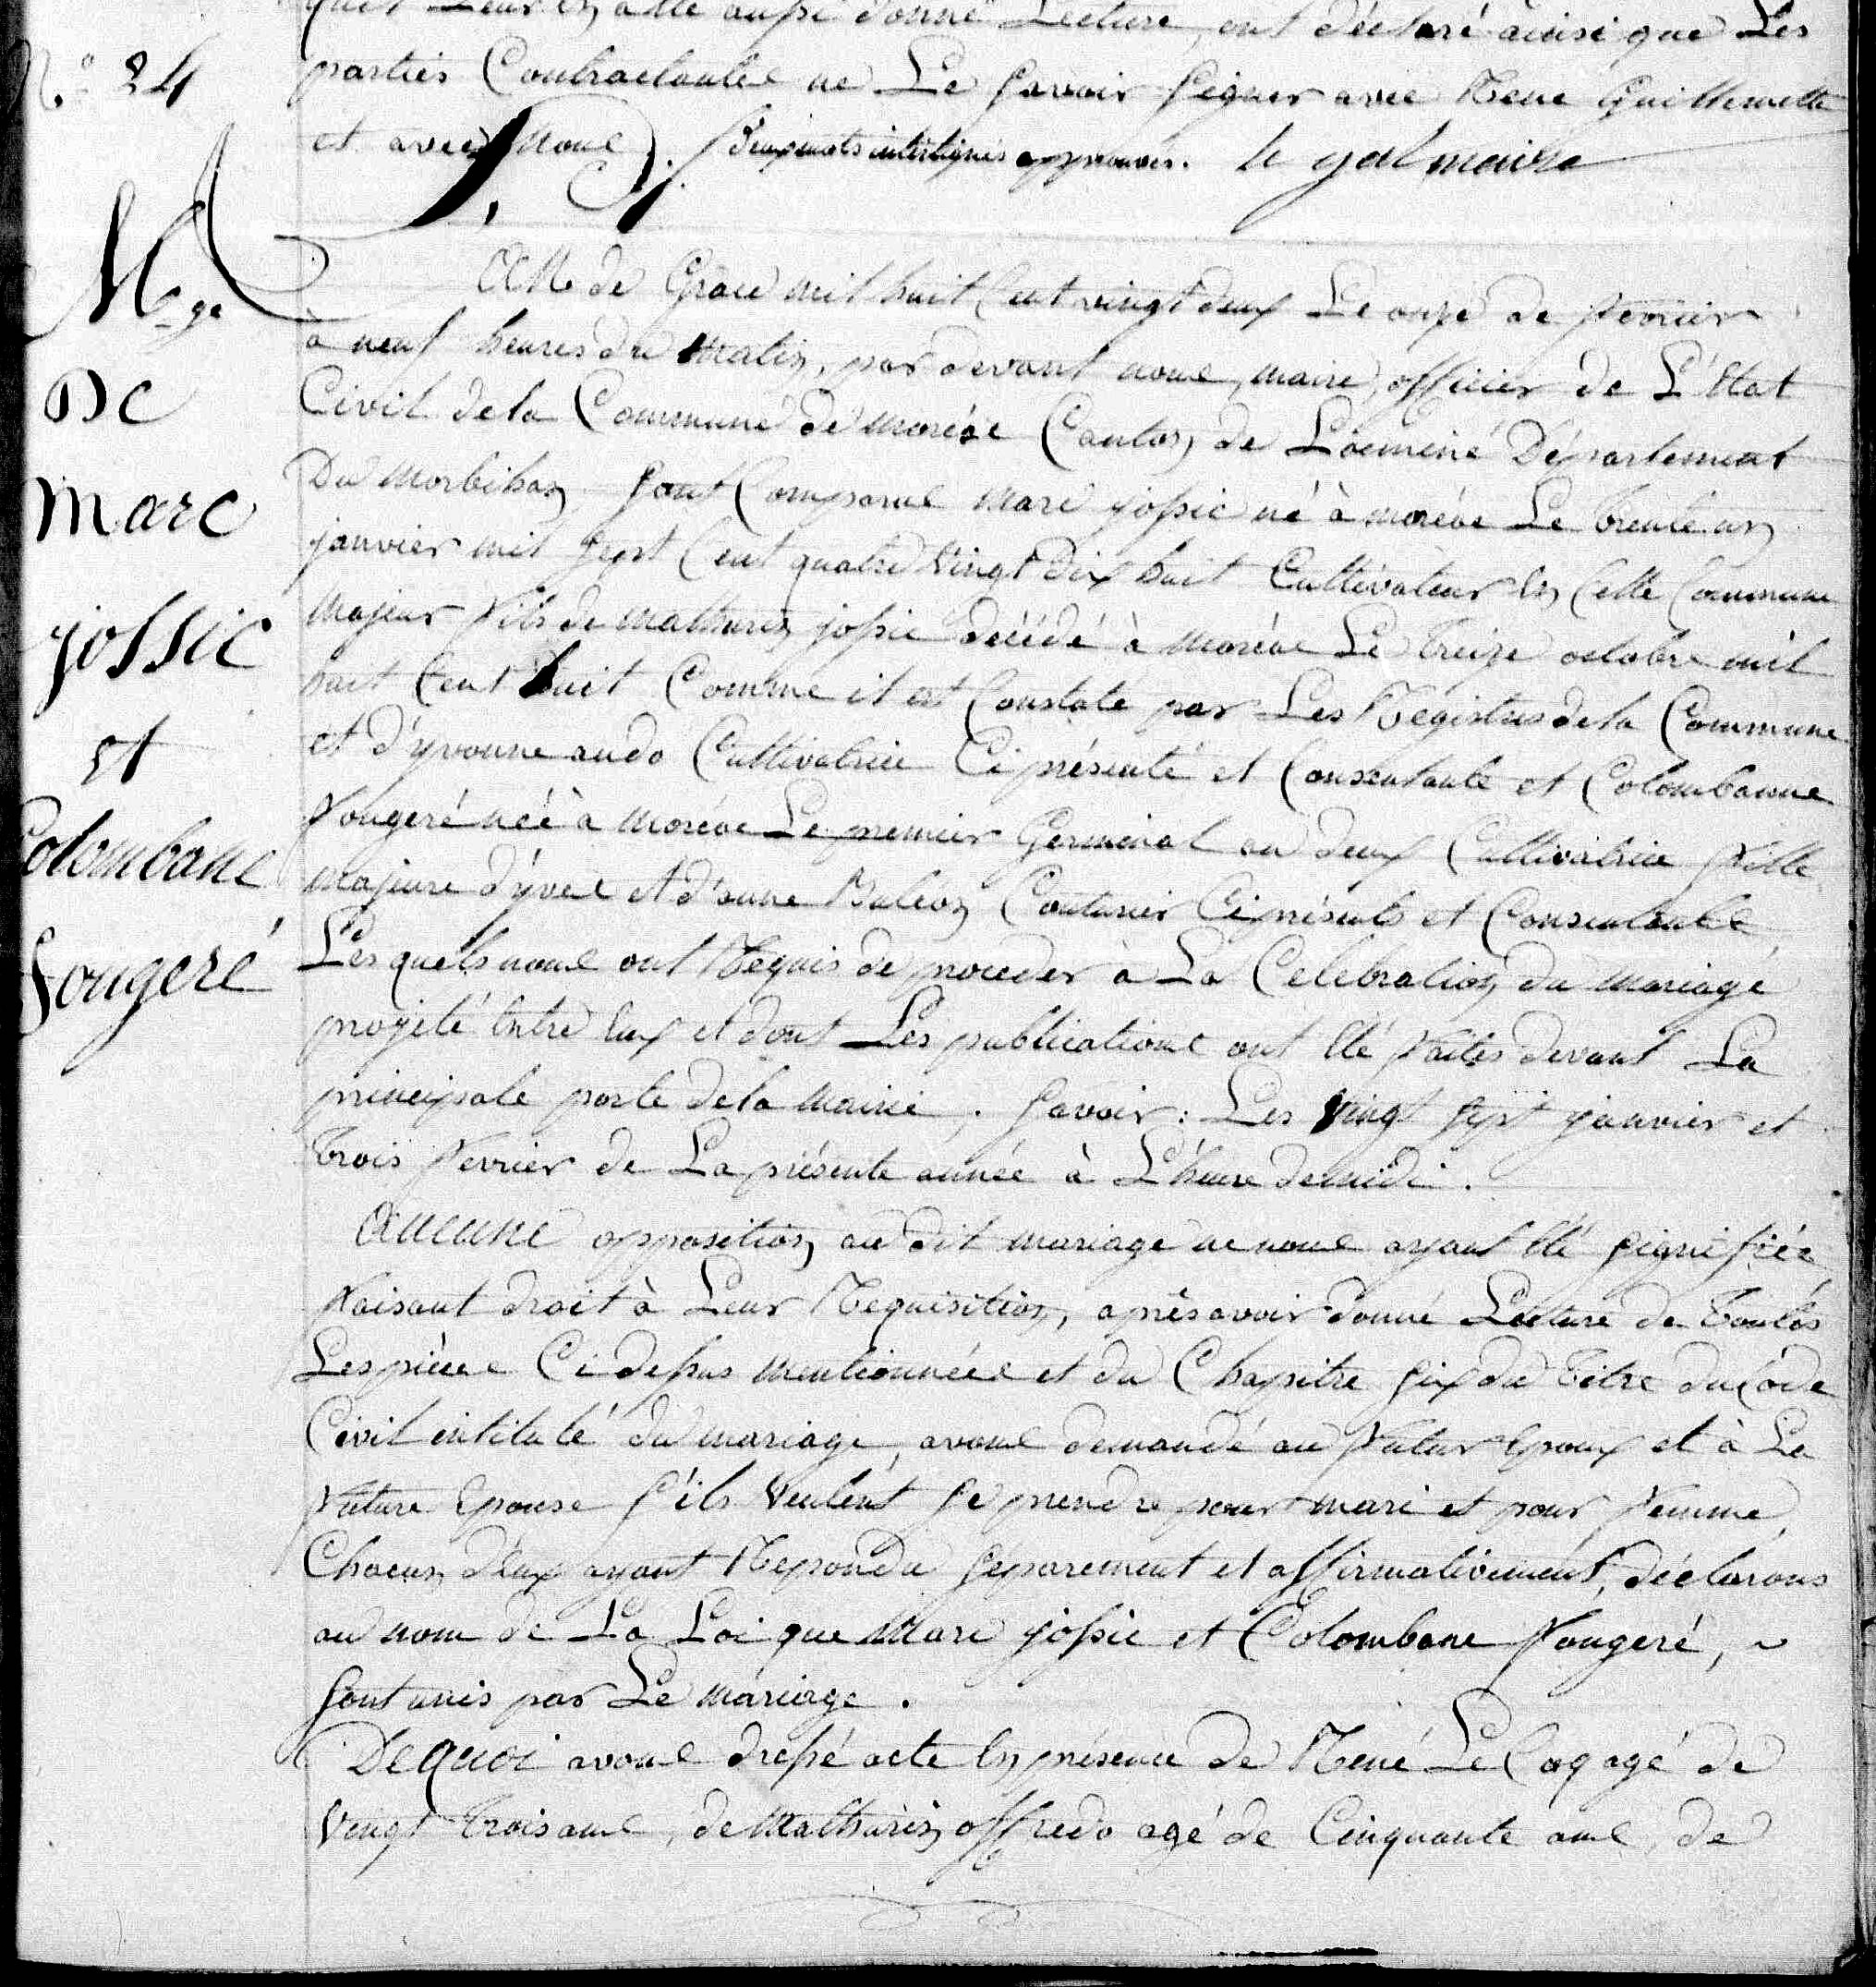 aussi donné Lecture, ont déclaré ainsi que Les
N.o 24
parties Contractantes ne Le savoir signer avec René Guillemette
et avec Nous ./. Deux mots interlignés approuvés. le gal maire
M.ge
De
Marc
jossic
et
Colombane
fougeré
de Grace mil huit Cent vingt deux Le onze de fevrier
à neuf heures du Matin, par devant nous, maire, officier de L'Etat
Civil de la Commune de moréac Canton de Locminé Département
Du Morbihan sont Comparus Marc jossic né à moréac Le trente un
janvier mil sept Cent quatre Vingt dix huit Cultivateur En Cette Commune
Majeur fils de Mathurin jossic décédé à Moréac Le treize octobre mil
huit Cent huit Comme il est Constaté par Les Registres de la Commune
et d'yvonne audo Cultivatrice Ci présente et Consentante et Colombanne
fougeré née à Moréac Le premier Germinal an deux Cultivatrice fille
majeure d'yves et d'anne Couturier Ci présents et Consentants
Les quels nous ont Requis de proceder à La Celebration du mariage
projeté Entre Eux et dont Les publications ont Eté faites devant La
principale porte de la Mairie, savoir : Les Vingt sept janvier et
trois fevrier de La présente année à L'heure de midi.
Aucune opposition au dit mariage ne nous ayant Eté signifiée
faisant droit à Leur Requisition, après avoir donné Lecture de toutes
Les pièces Ci dessus Mentionnées et du Chapitre six du titre du Code
Civil intitulé du mariage, avons demandé au futur Epoux et à La
future Epouse s'ils veulent se prendre pour mari et pour femme,
Chacun d'eux ayant Repondu séparement et affirmativement, déclarons
au nom de La Loi que Marc jossic et Colombane fougeré, ~
sont unis par Le mariage.
De quoi avons dressé acte En présence de René Le Cag agé de
Vingt trois ans, de Mathurin offredo agé de Cinquante ans, de